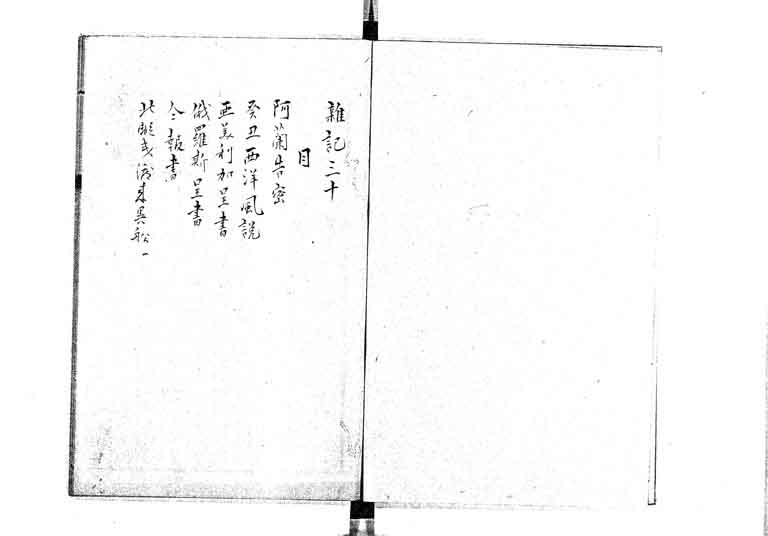 雑記三十
目
阿蘭告密
癸丑西洋風説
亜美利加呈書
俄羅斯呈書
仝報書
北陬 渡来異船一